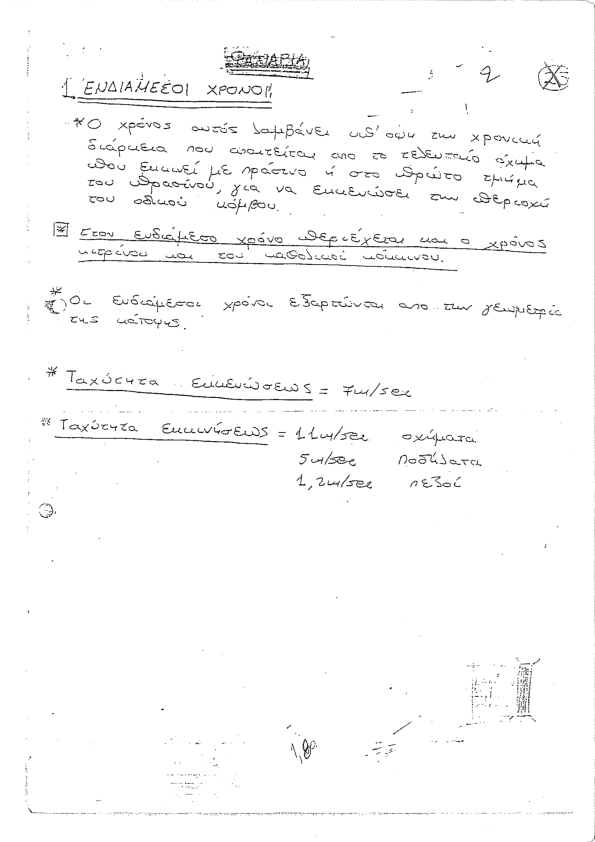 ΦΑΝΑΡΙΑ
2
1. ΕΝΔΙΑΜΕΣΟΙ ΧΡΟΝΟΙ
* Ο χρόνος αυτός λαμβάνει υπ' οψη την χρονική
διάρκεια που απαιτείται απο το τελευταίο όχημα
που ξεκινεί με πράσινο ή στο πρώτο τμήμα
του πρασίνου, για να εκκενώσει την περιοχή
του οδικού κόμβου.
* Στον ενδιάμεσο χρόνο περιέχεται και ο χρόνος
κιτρίνου και του καθολικού κόκκινου.
* Οι ενδιάμεσοι χρόνοι εξαρτώνται απο την γεωμετρία
της κάτοψης.
* Ταχύτητα εκκενώσεως = 7m/sec
* Ταχύτητα εκκινήσεως = 11m/sec οχήματα
5m/sec ποδήλατα
1,2m/sec πεζοί